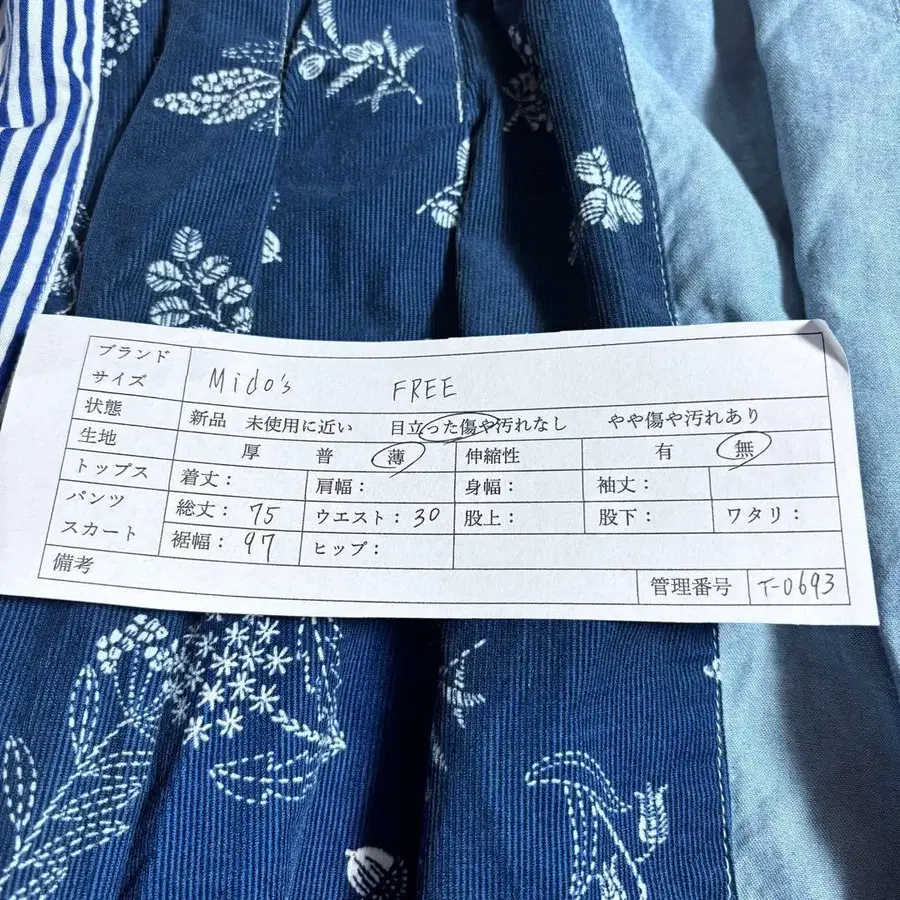 ブランド
サイズ
Mido's FREE
状態 新品 未使用に近い 目立った傷や汚れなし やや傷や汚れあり
生地 厚 普 薄 伸縮性 有 無
トップス 着丈： 肩幅： 身幅： 袖丈：
パンツ
スカート
総丈：75 ウエスト：30 股上： 股下： ワタリ：
裾幅：97 ヒップ：
備考
管理番号 T-0693